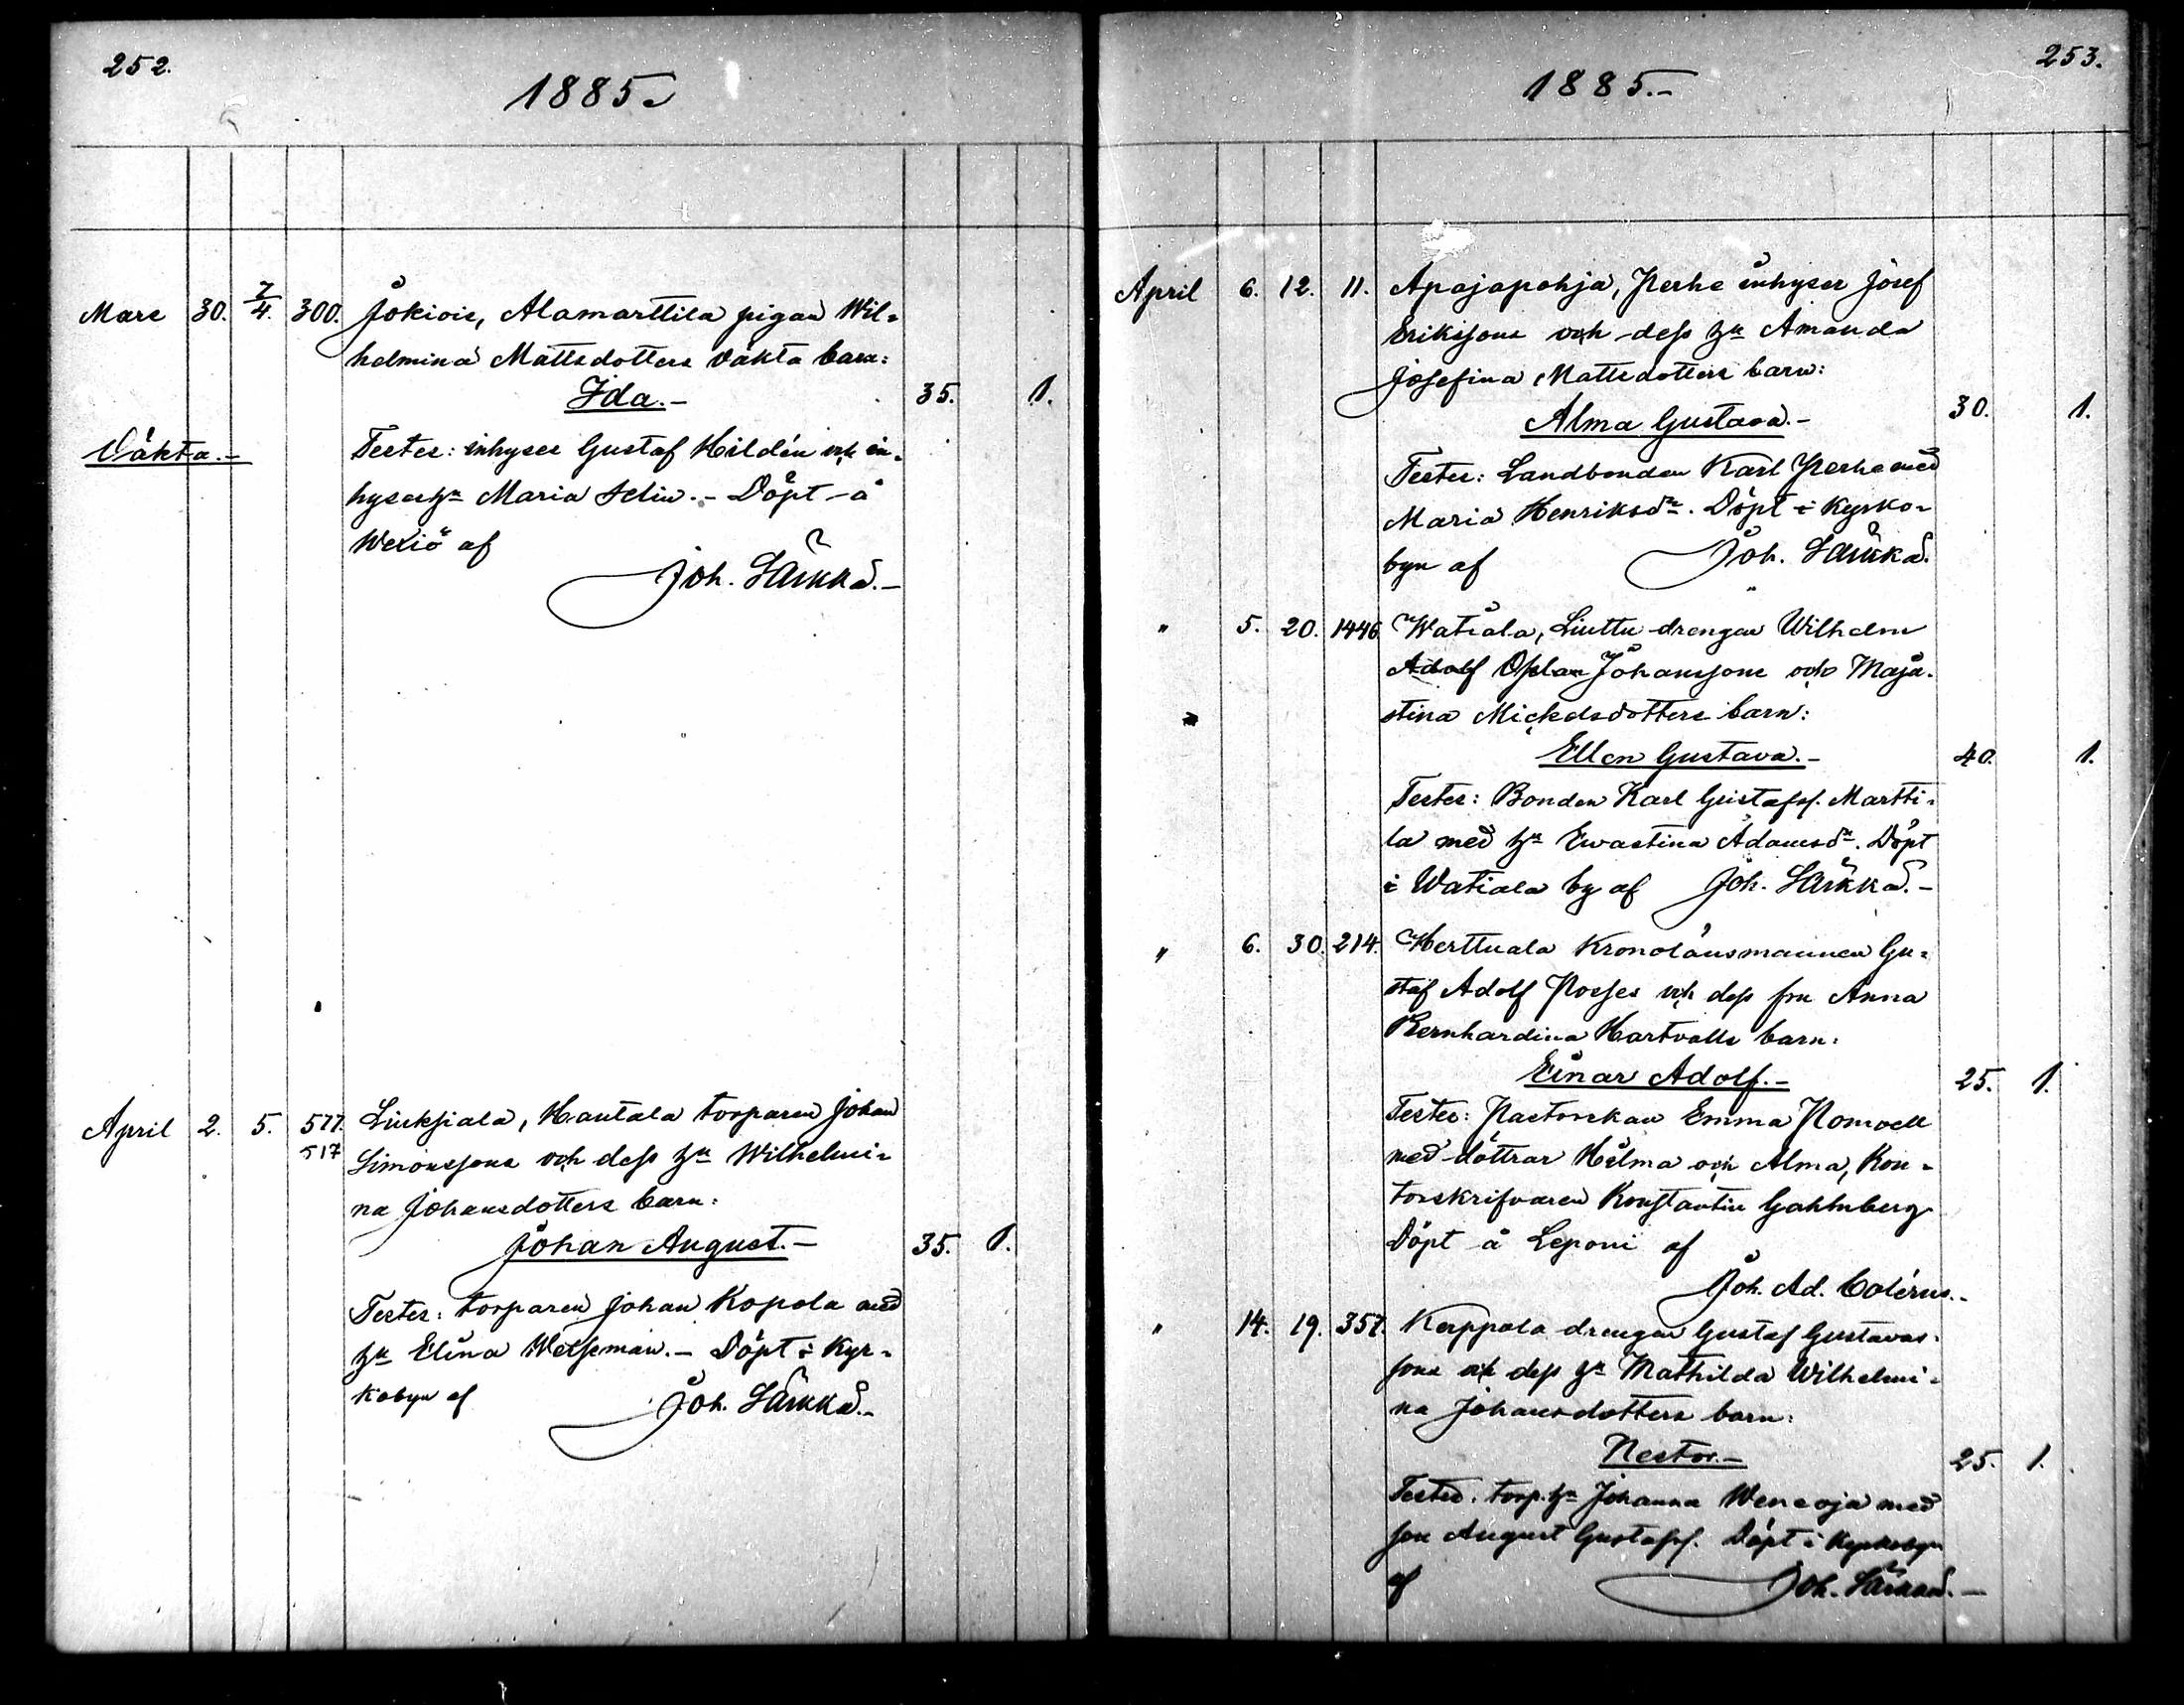 252.
1885.
Mars 30. 7/4. 300. Jokiois, Alamarttila pigan Wil-
helmina Mattsdotters oäkta barn:
Ida.- 35. 1.
Oäkta.- Testes: inhyses Gustaf Hildén och in-
hyseshu Maria Selin.- Döpt å
Wexiö af
Joh. Särkkä.-
April 2. 5. 577. Liuksiala, Hautala torparen Johan
517 Simonssons och dess hu Wilhelmi-
na Johansdotters barn:
Johan August.- 35. 1.
Testes: torparen Johan Kopola med
hu Elina Weseman.- Döpt i Kyr-
kobyn af Joh. Särkkä.-
253.
1885.-
April 6. 12. 11. Apajapohja, Perhe inhyses Josef
Erikssons och dess hu Amanda
Josefina Mattsdotters barn:
Alma Gustava.- 30. 1.
Testes: Landbonden Karl Perhe med
Maria Henriksdr. Döpt i Kyrko-
byn af Joh. Särkkä.
" 5. 20. 1446. Watiala, Liuttu drengen Wilhelm
Adolf Johanssons och Maja-
stina Mickelsdotters barn:
Ellen Gustava.- 40. 1.
Testes: Bonden Karl Gustafss. Martti-
la med hu Ewastina Adamsdr. Döpt
i Watiala by af Joh. Särkkä.-
" 6. 30. 214. Herttuala Kronolänsmannen Gu-
staf Adolf Posses och dess fru Anna
Bernhardina Hartvalls barn:
Einar Adolf.- 25. 1.
Testes: Pastorskan Emma Nomvell
med döttrar Hilma och Alma, Kon-
torskrifvaren Konstantin Gahmberg
Döpt å Leponi af
Joh. Ad. Colérus.-
" 14. 19. 357. Kerppola drengen Gustaf Gustavas-
sons och dess hu Mathilda Wilhelmi-
na Johansdotters barn:
Nestor.- 25. 1.
Testes: torp.hu Johanna Weneoja med
son August Gustafss. Döpt i Kyrkobyn
af Joh. Särkkä.-